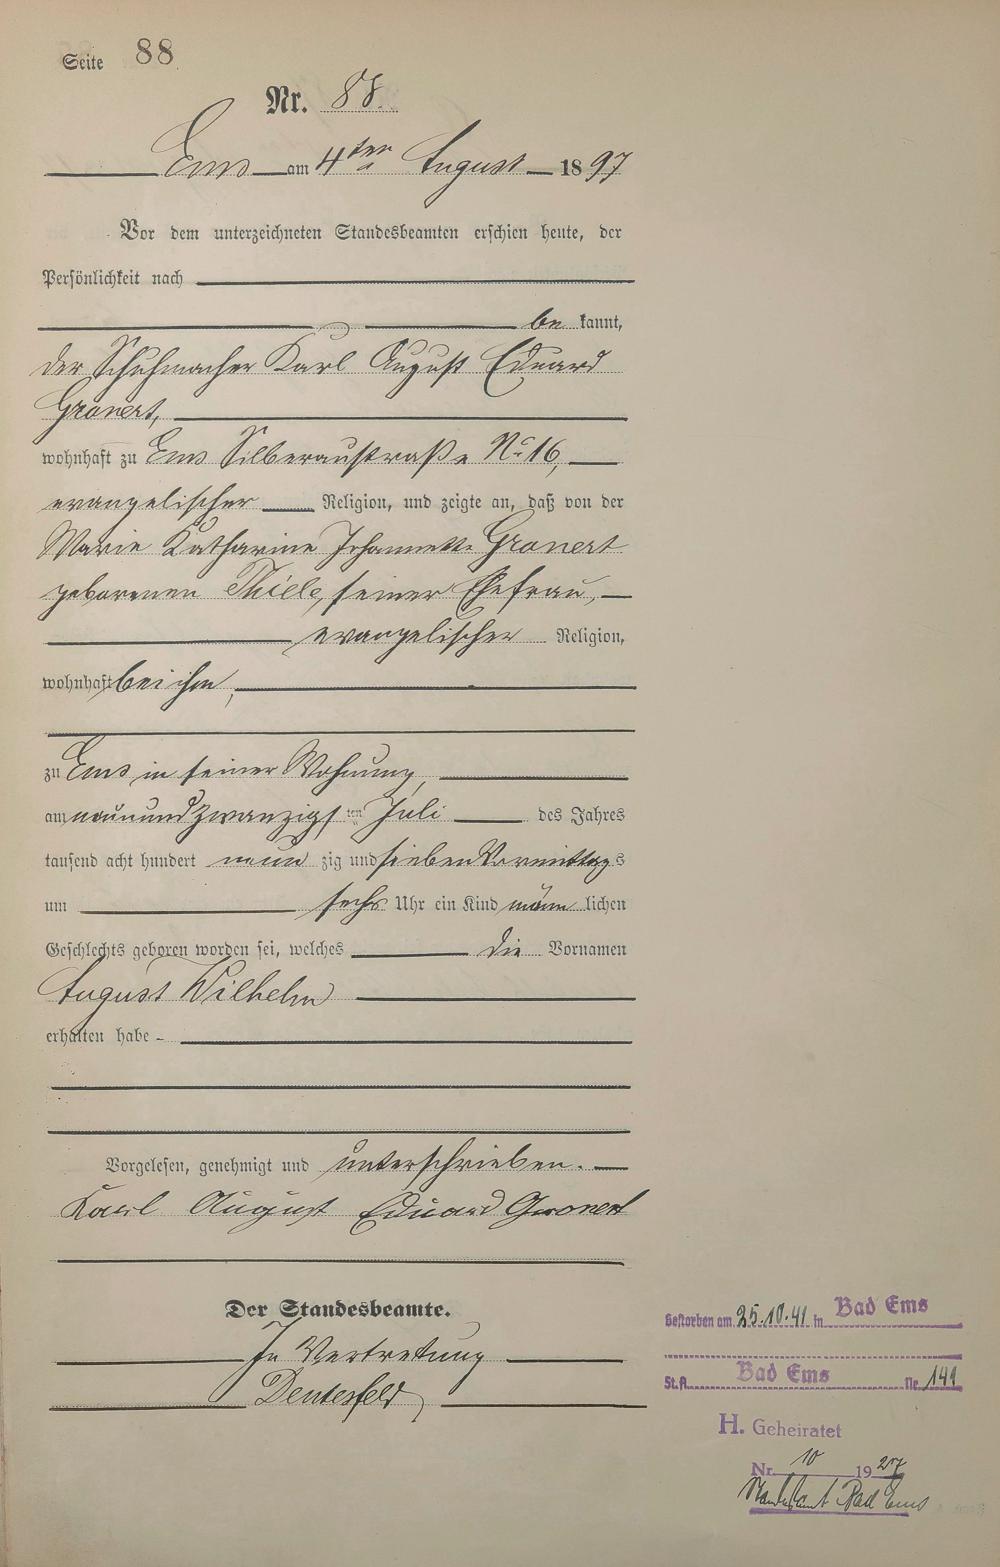 Seite 88
Nr. 88.
Ems am 4ten August 1897
Vor dem unterzeichneten Standesbeamten erschien heute, der
Persönlichkeit nach
be kannt,
der Schuhmacher Karl August Eduard
Gronert,
wohnhaft zu Ems Silberaustraße No 16,
evangelischer Religion, und zeigte an, daß von der
Marie Katharine Johannette Gronert
geborenen Thiele, seiner Ehefrau,
evangelischer Religion,
wohnhaft bei ihm,
zu Ems in seiner Wohnung
am neunundzwanzigsten Juli des Jahres
tausend acht hundert neun zig und sieben Vormittags
um sechs Uhr ein Kind männ lichen
Geschlechts geboren worden sei, welches die Vornamen
August Wilhelm
erhalten habe
Vorgelesen, genehmigt und unterschrieben.
Karl August Eduard Gronert
Der Standesbeamte.
In Vertretung
Gestorben am 25.10.41 in Bad Ems
St.A. Bad Ems Nr. 141
H. Geheiratet
Nr. 10 1927
Standesamt Bad Ems